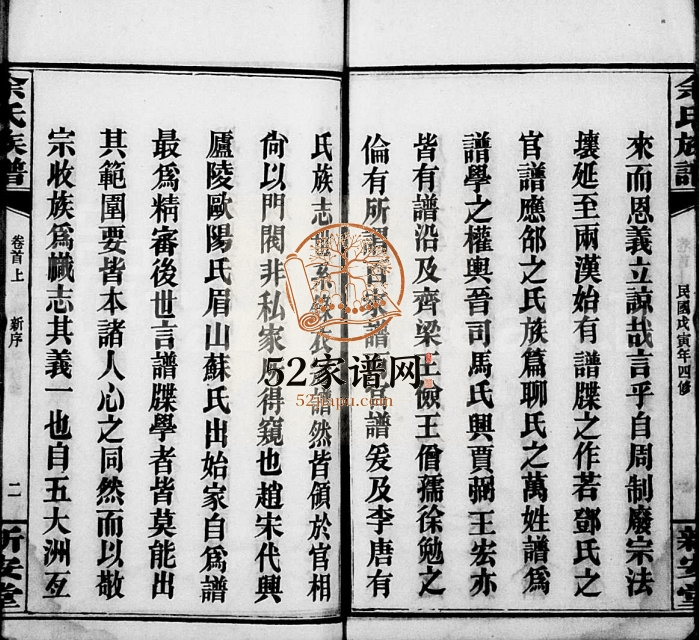 余氏族譜
卷首
民國戊寅年四修
新安堂
來而恩義立諒哉言乎自周制廢宗法
壞延至兩漢始有譜牒之作若鄧氏之
官譜應邵之氏族篇聊氏之萬姓譜爲
譜學之權輿晉司馬氏興賈弼王宏亦
皆有譜沿及齊梁王儉王僧孺徐勉之
倫有所謂百家譜 譜爰及李唐有
氏族志 系錄衣 譜然皆領於官相
尙以門閥非私家所得窺也趙宋代興
廬陵歐陽氏眉山蘇氏出始家自爲譜
最爲精審後世言譜牒學者皆莫能出
其範圍要皆本諸人心之同然而以敬
宗收族爲幟志其義一也自五大洲互
余氏族譜
卷首上
新序
二
新安堂
52家谱网
52jiapu.com